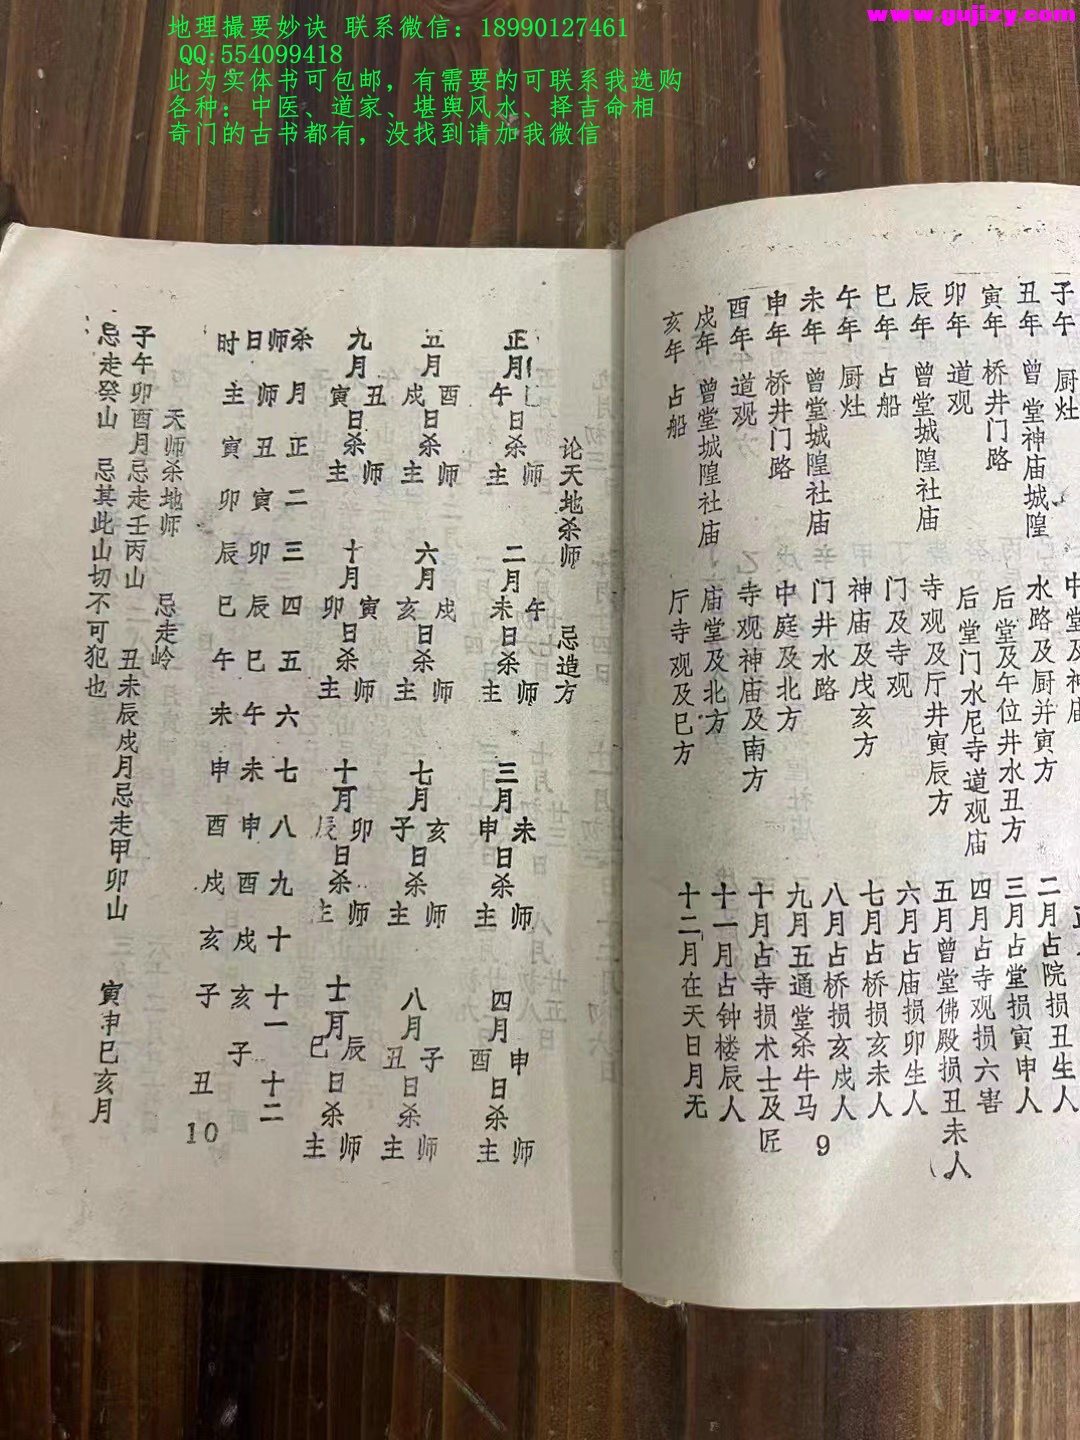 地理撮要妙诀 联系微信：18990127461
QQ:554099418
此为实体书可包邮，有需要的可联系我选购
各种：中医、道家、堪舆风水、择吉命相
奇门的古书都有，没找到请加我微信
www.gujizy.com
子年 厨灶
丑年 曾堂神庙城隍
寅年 桥井门路
卯年 道观
辰年 曾堂城隍社庙
巳年 占船
午年 厨灶
未年 曾堂城隍社庙
申年 桥井门路
酉年 道观
戌年 曾堂城隍社庙
亥年 占船
中堂及神庙
水路及厨并寅方
后堂及午位井水丑方
后堂门水尼寺道观庙
寺观及厅井寅辰方
门及寺观
神庙及戊亥方
门井水路
中庭及北方
寺观神庙及南方
庙堂及北方
厅寺观及巳方
二月占院损丑生人
三月占堂损寅申人
四月占寺观损六害
五月曾堂佛殿损丑未人
六月占庙损卯生人
七月占桥损亥未人
八月占桥损亥戌人
九月五通堂杀牛马
十月占寺损术士及匠
十一月占钟楼辰人
十二月在天日月无
9
论天地杀师 忌造方
正月 午日杀师主
二月 午未日杀师主
三月 未申日杀师主
四月 申酉日杀师主
五月 酉戌日杀师主
六月 戌亥日杀师主
七月 亥子日杀师主
八月 子丑日杀师主
九月 丑寅日杀师主
十月 寅卯日杀师主
十一月 卯辰日杀师主
十二月 辰巳日杀师主
杀月 正二三四五六七八九十十一十二
师师 丑寅卯辰巳午未申酉戌亥子
日时主 寅卯辰巳午未申酉戌亥子丑
天师杀地师 忌走岭
子午卯酉月忌走壬丙山 丑未辰戌月忌走甲卯山 寅申巳亥月
忌走癸山 忌其此山切不可犯也
10